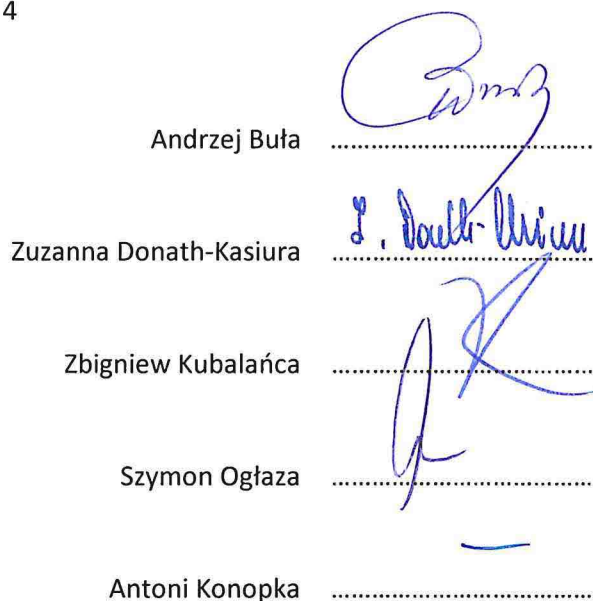 4
Andrzej Buła ..............................
Zuzanna Donath-Kasiura ..............................
Zbigniew Kubalańca ..............................
Szymon Ogłaza ..............................
Antoni Konopka ..............................